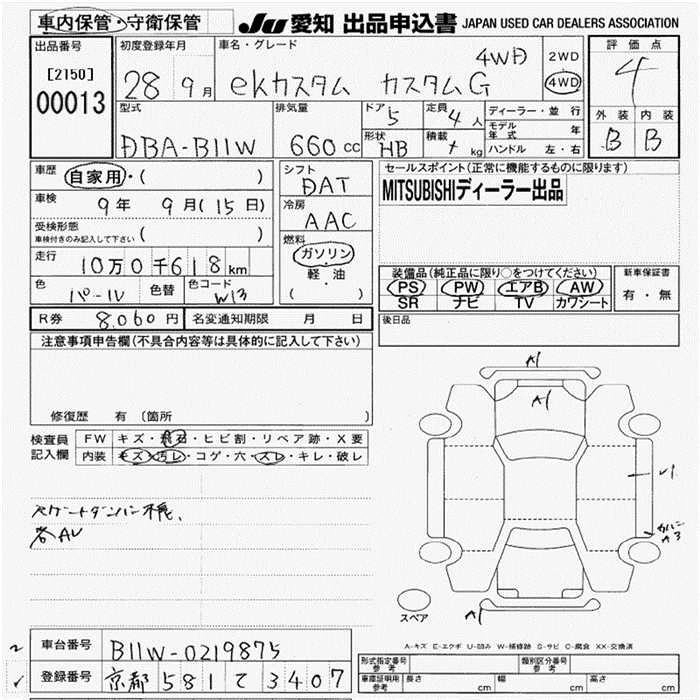 車内保管・守衛保管
JU 愛知 出品申込書 JAPAN USED CAR DEALERS ASSOCIATION
出品番号
[2150]
00013
初度登録年月
28 9月
車名・グレード
ekカスタム カスタムG 4WD
2WD
4WD
評価点
4
外装 内装
B B
型式
DBA-B11W
排気量
660cc
ドア
5
定員
4人
形状
HB
積載
kg
ディーラー・並 行
モデル年式 年
ハンドル 左・右
車歴
自家用・( )
車検
9年 9月(15日)
受検形態
車検付きのみ記入して下さい ( )
走行
10万0千618km
色
パール
色替
色コード
W13
シフト
DAT
冷房
AAC
燃料
ガソリン
軽・油
( )
セールスポイント(正常に機能するものに限ります)
MITSUBISHIディーラー出品
装備品(純正品に限り○をつけてください)
PS PW エアB AW
SR ナビ TV カワシート
新車保証書
有・無
R券 8,060円 名変通知期限 月 日
後日品
注意事項申告欄(不具合内容等は具体的に記入して下さい)
修復歴 有 (箇所 )
検査員
記入欄
FW キズ・飛石・ヒビ割・リペア跡・X要
内装 キズ・汚レ・コゲ・穴・スレ・キレ・破レ
A1
A1
A3
A1
スペア
A-キズ E-エクボ U-凹み W-補修跡 S-サビ C-腐食 XX-交換済
車台番号 B11W-0219875
登録番号 京都 581 て 3407
形式指定番号
参考
類別区分番号
参考
車庫証明用
参考
長さ cm 幅 cm 高さ cm